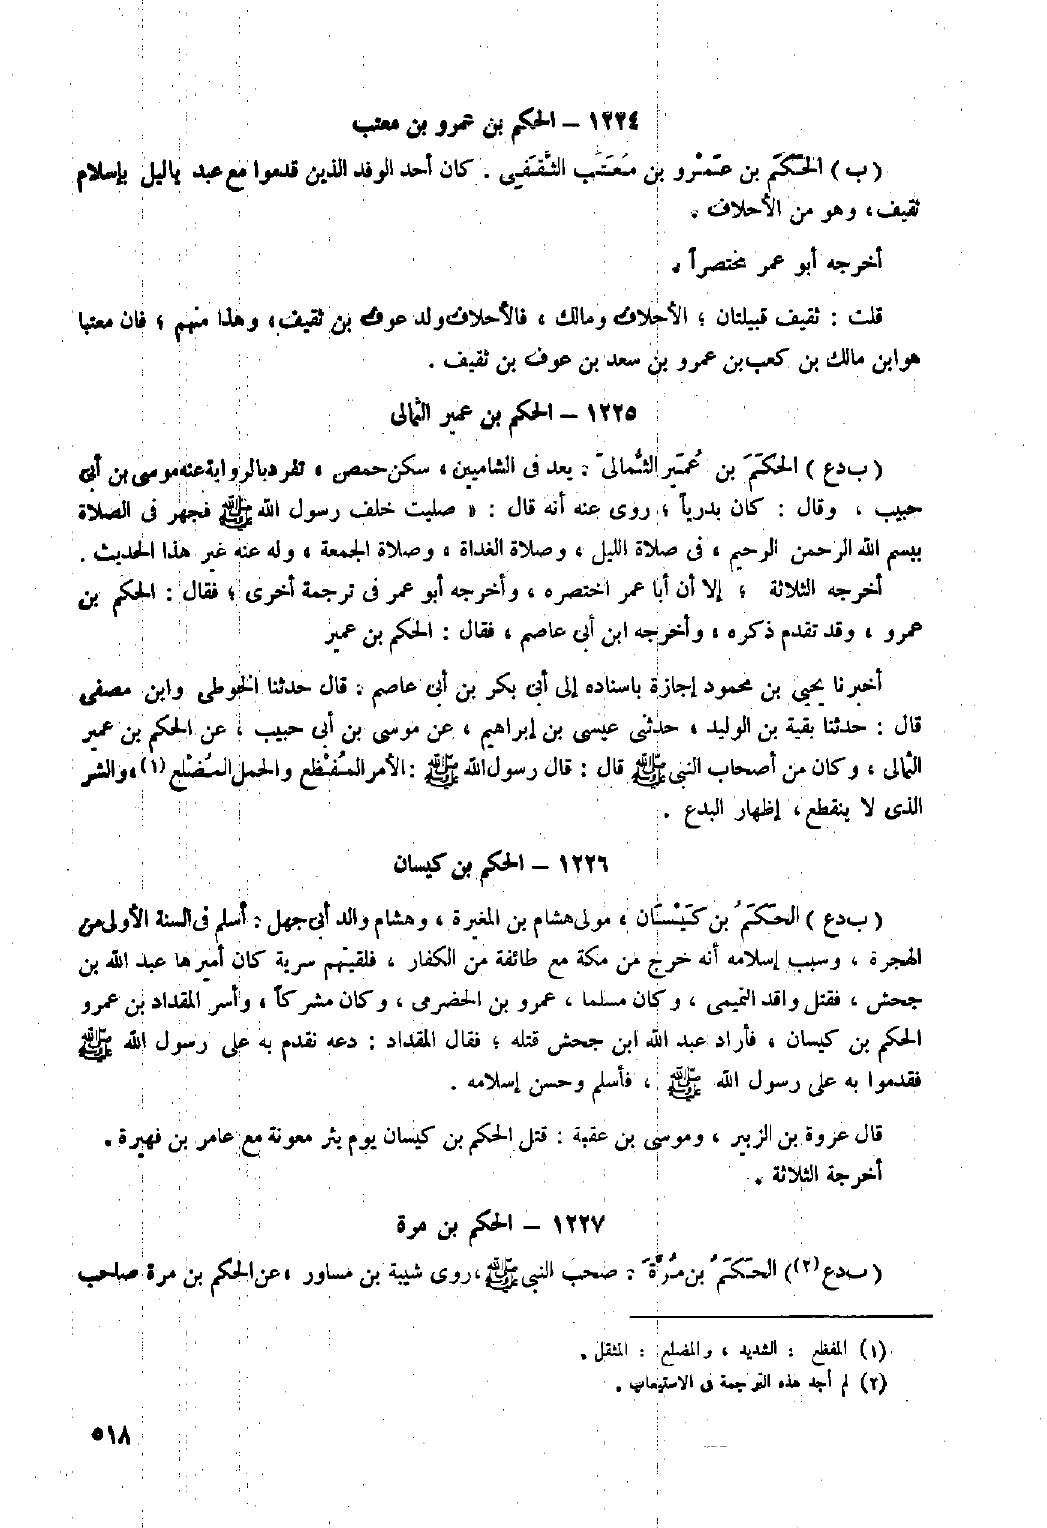 ١٢٢٤ – الحكم بن عمرو بن معتب
(ب) الحَكَمَ بن عَمْرو بن مَعَتِّب الثَّقَفيى . كان أحد الوفد الذين قدموا مع عبد ياليل بإسلام
ثقيف، وهو من الأحلاف .
أخرجه أبو عمر مختصراً .
قلت : ثقيف قبيلتان ؛ الأحلاف ومالك ، فالأحلاف ولد عوف بن ثقيف، وهذا منهم ؛ فان معتبا
هو ابن مالك بن كعب بن عمرو بن سعد بن عوف بن ثقيف .
١٢٢٥ – الحكم بن عمير الثمالى
(ب د ع) الحكَمَ بن عُمَير الثُّمالىّ . يعد فى الشاميين، سكن حمص ، تفرد بالرواية عنه موسى بن أبى
حبيب ، وقال : كان بدرياً ؛ روى عنه أنه قال : « صليت خلف رسول الله ﷺ فجهر فى الصلاة
ببسم الله الرحمن الرحيم ، فى صلاة الليل ، وصلاة الغداة ، وصلاة الجمعة ، وله عنه غير هذا الحديث .
أخرجه الثلاثة ؛ إلا أن أبا عمر اختصره ، وأخرجه أبو عمر فى ترجمة أخرى ؛ فقال : الحكم بن
عمرو ، وقد تقدم ذكره ، وأخرجه ابن أبى عاصم ، فقال : الحكم بن عمير
أخبرنا يحيى بن محمود إجازة باسناده إلى أبى بكر بن أبى عاصم : قال حدثنا الحوطى وابن مصفى
قال : حدثنا بقية بن الوليد ، حدثنى عيسى بن إبراهيم ، عن موسى بن أبى حبيب ، عن الحكم بن عمير
الثمالى ، وكان من أصحاب النبى ﷺ قال : قال رسول الله ﷺ : الأمر المُفْظِع والحمل المُضْلِع (١)، والشر
الذى لا ينقطع، إظهار البدع .
١٢٢٦ – الحكم بن كيسان
(ب د ع) الحَكَمُ بن كَيْسَان ، مولى هشام بن المغيرة ، وهشام والد أبى جهل : أسلم فى السنة الأولى من
الهجرة ، وسبب إسلامه أنه خرج من مكة مع طائفة من الكفار ، فلقيتهم سرية كان أميرها عبد الله بن
جحش ، فقتل واقد التميمى ، وكان مسلما ، عمرو بن الحضرمى ، وكان مشركاً ، وأسر المقداد بن عمرو
الحكم بن كيسان ، فأراد عبد الله ابن جحش قتله ؛ فقال المقداد : دعه نقدم به على رسول الله ﷺ
فقدموا به على رسول الله ﷺ ، فأسلم وحسن إسلامه .
قال عروة بن الزبير ، وموسى بن عقبة : قتل الحكم بن كيسان يوم بئر معونة مع عامر بن فهيرة .
أخرجة الثلاثة .
١٢٢٧ – الحكم بن مرة
(ب د ع (٢)) الحَكَمُ بن مُرَّةَ : صحب النبى ﷺ، روى شيبة بن مساور ، عن الحكم بن مرة صاحب
(١) المفظع : الشديد ، والمضلع : المثقل .
(٢) لم أجد هذه الترجمة فى الاستيعاب .
٥١٨